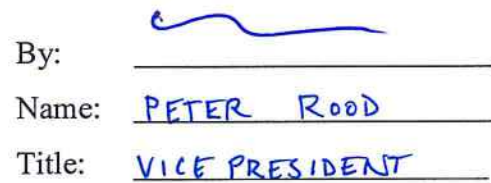 By:
Name: PETER ROOD
Title: VICE PRESIDENT